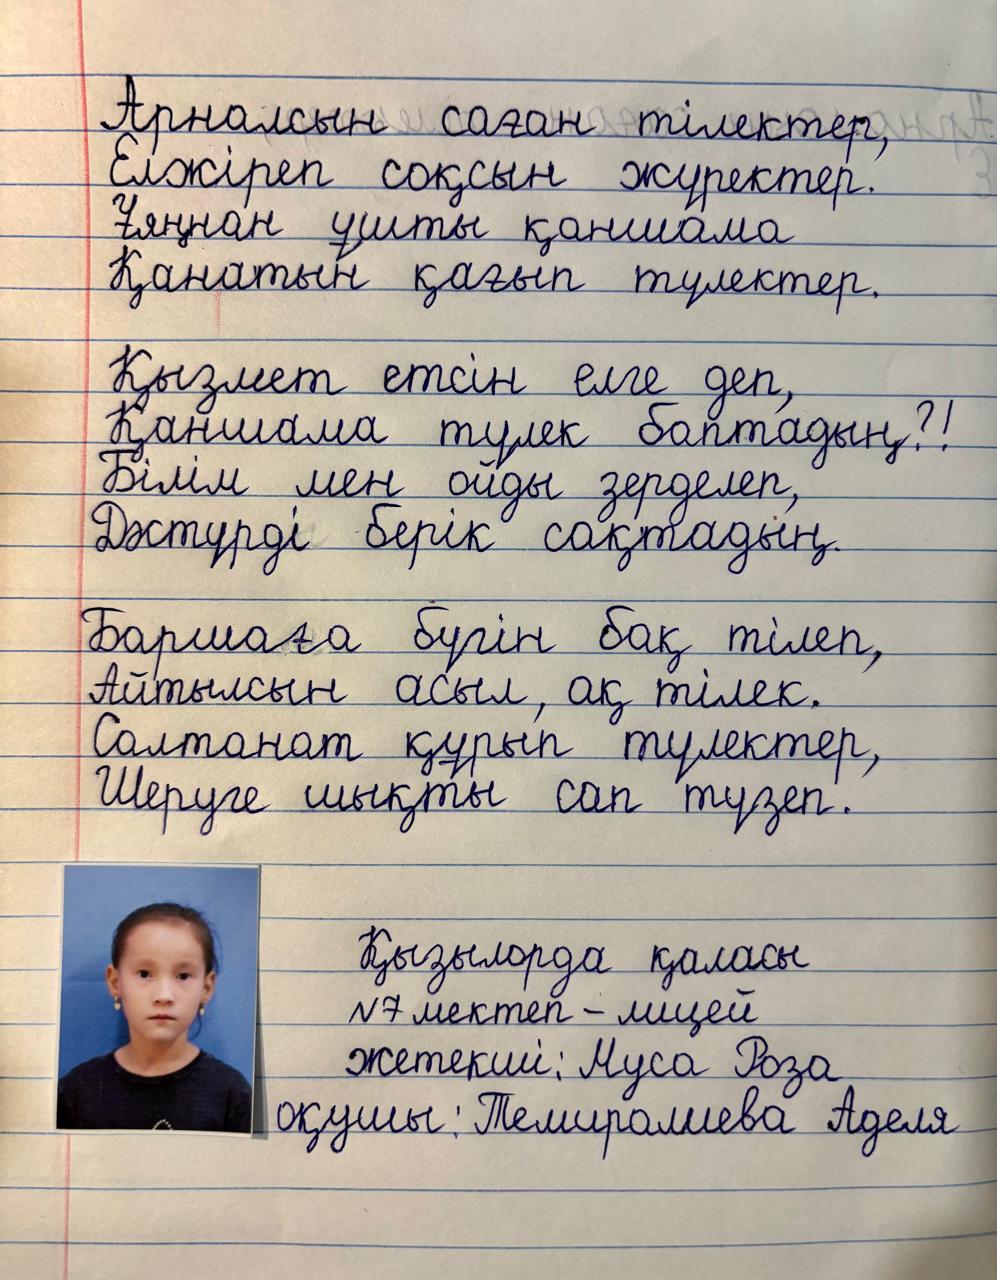 Арналсын саған тілектер,
Елжіреп соқсын жүректер.
Ұяңнан ұшты қаншама
Қанатын қағып түлектер.
Қызмет етсін елге деп,
Қаншама түлек баптадың?!
Білім мен ойды зерделеп,
Дәстүрді берік сақтадың.
Баршаға бүгін бақ тілеп,
Айтылсын асыл, ақ тілек.
Салтанат құрып түлектер,
Шеруге шықты сап түзеп.
Қызылорда қаласы
N7 мектеп - лицей
жетекші: Муса Роза
оқушы: Темиралиева Аделя